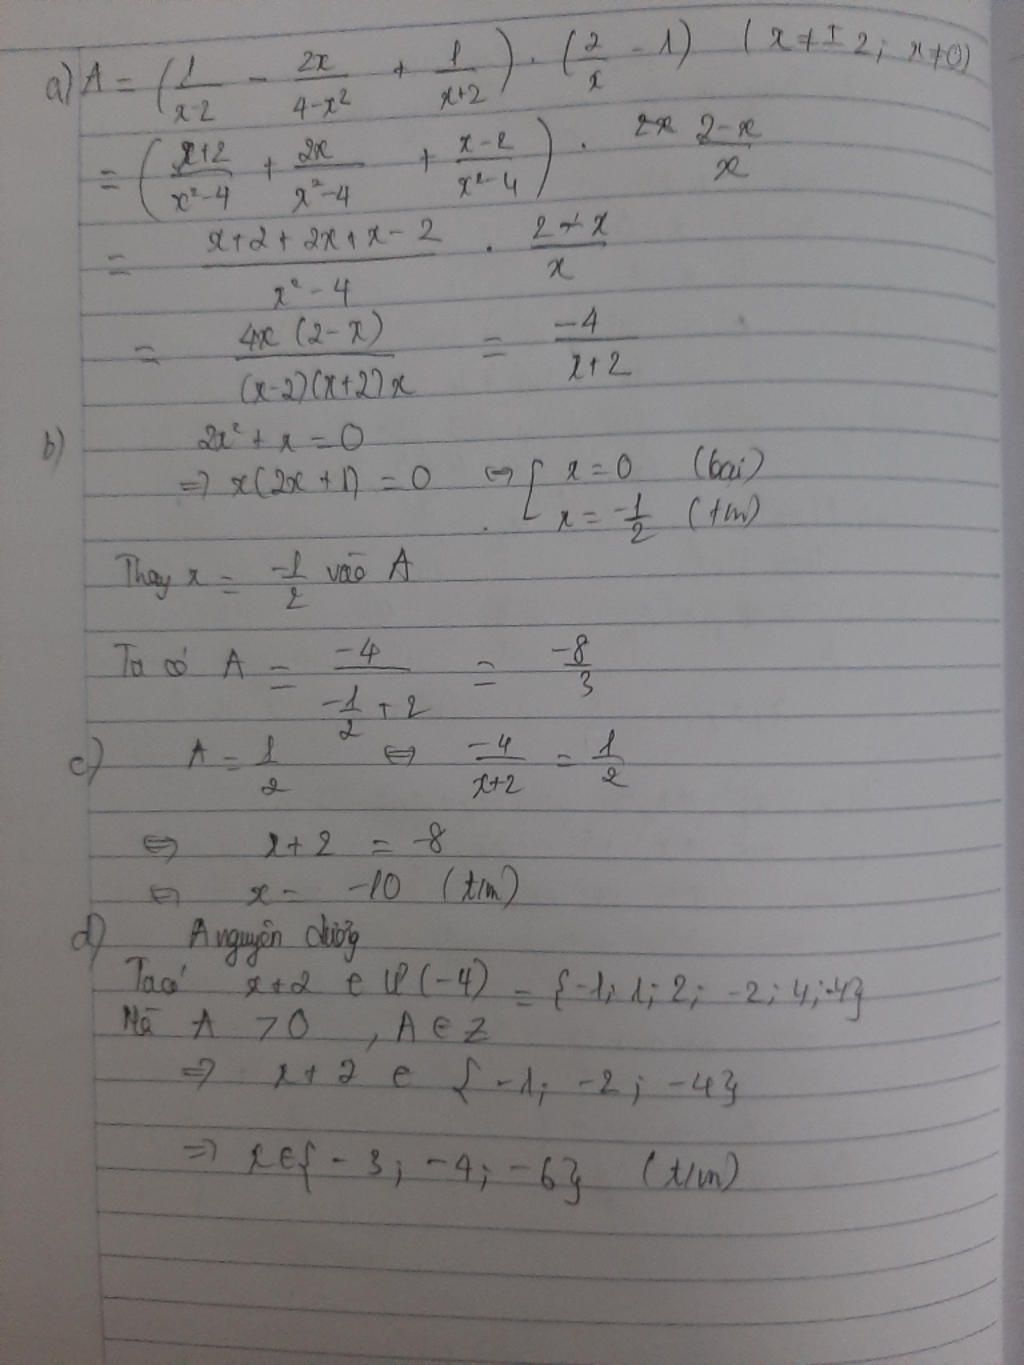 a) A = (1/(x-2) - 2x/(4-x²) + 1/(x+2)) . (2/x - 1) (x ≠ ± 2; x ≠ 0)
= ((x+2)/(x²-4) + 2x/(x²-4) + (x-2)/(x²-4)) . (2-x)/x
= (x+2+2x+x-2)/(x²-4) . (2-x)/x
= 4x(2-x)/((x-2)(x+2)x) = -4/(x+2)
b) 2x² + x = 0
⇒ x(2x+1) = 0 ⇔ [ x = 0 (loại)
x = -1/2 (t/m)
Thay x = -1/2 vào A
Ta có A = -4/(-1/2 + 2) = -8/3
c) A = 1/2 ⇔ -4/(x+2) = 1/2
⇔ x+2 = -8
⇔ x = -10 (t/m)
d) A nguyên dương
Ta có x+2 ∈ Ư(-4) = {-1; 1; 2; -2; 4; -4}
Mà A > 0 , A ∈ Z
⇒ x+2 ∈ {-1; -2; -4}
⇒ x ∈ {-3; -4; -6} (t/m)